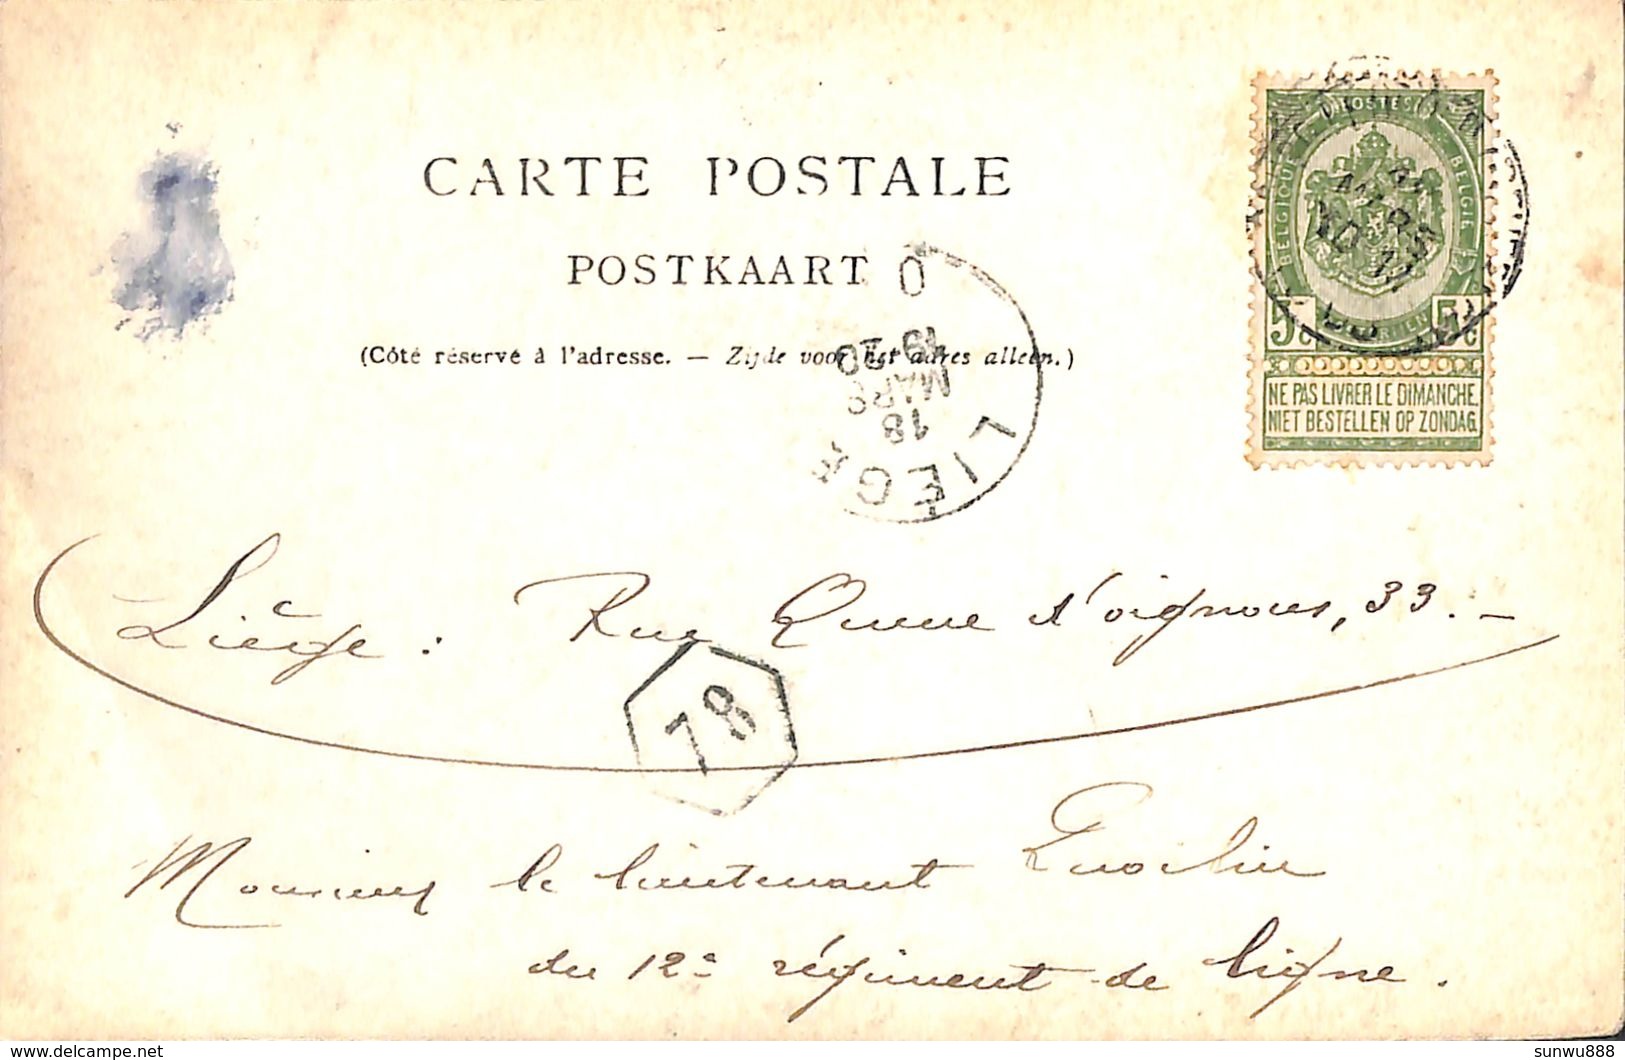 CARTE POSTALE
POSTKAART
(Côté réservé à l'adresse. — Zijde voor het adres alleen.)
POSTES
BELGIQUE
BELGIE
5c 5c
NE PAS LIVRER LE DIMANCHE.
NIET BESTELLEN OP ZONDAG.
LIÈGE
18
MARS
19
Liège : Rue Queue d'oignons, 33. —
78
Monsieur le lieutenant
du 12e régiment de ligne.
delcampe.net
sunwu888